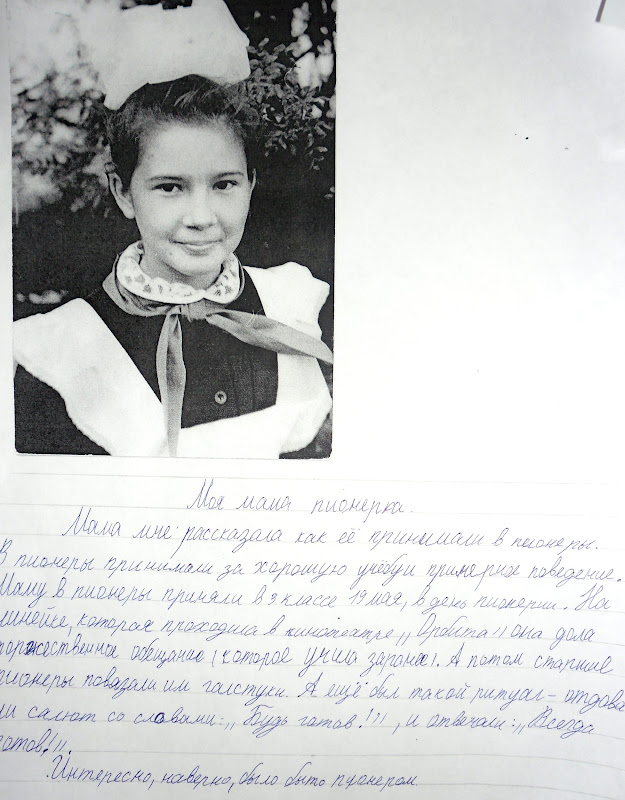 Моя мама пионерка.
Мама мне рассказала как её принимали в пионеры.
В пионеры принимали за хорошую учёбу и примерное поведение.
Маму в пионеры приняли в 3 классе 19 мая, в день пионерии. На
линейке, которая проходила в кинотеатре ,,Орбита,, она дала
торжественное обещание (которое учила заранее). А потом старшие
пионеры повязали им галстуки. А ещё был такой ритуал - отдова
ли салют со словами: ,,Будь готов!,, , и отвечали: ,,Всегда
готов!,,.
Интересно, наверно, было быть пионером.